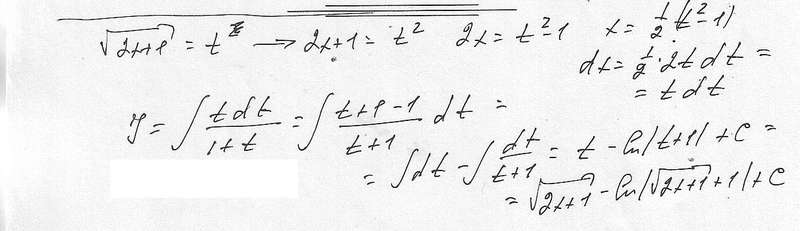 √(2x+1) = t → 2x+1 = t² 2x = t²-1 x = 1/2 (t²-1)
dx = 1/2 · 2t dt =
= t dt
y = ∫ t dt / (1+t) = ∫ (t+1-1)/(t+1) dt =
= ∫ dt - ∫ dt/(t+1) = t - ln|t+1| + C =
= √(2x+1) - ln|√(2x+1) + 1| + C